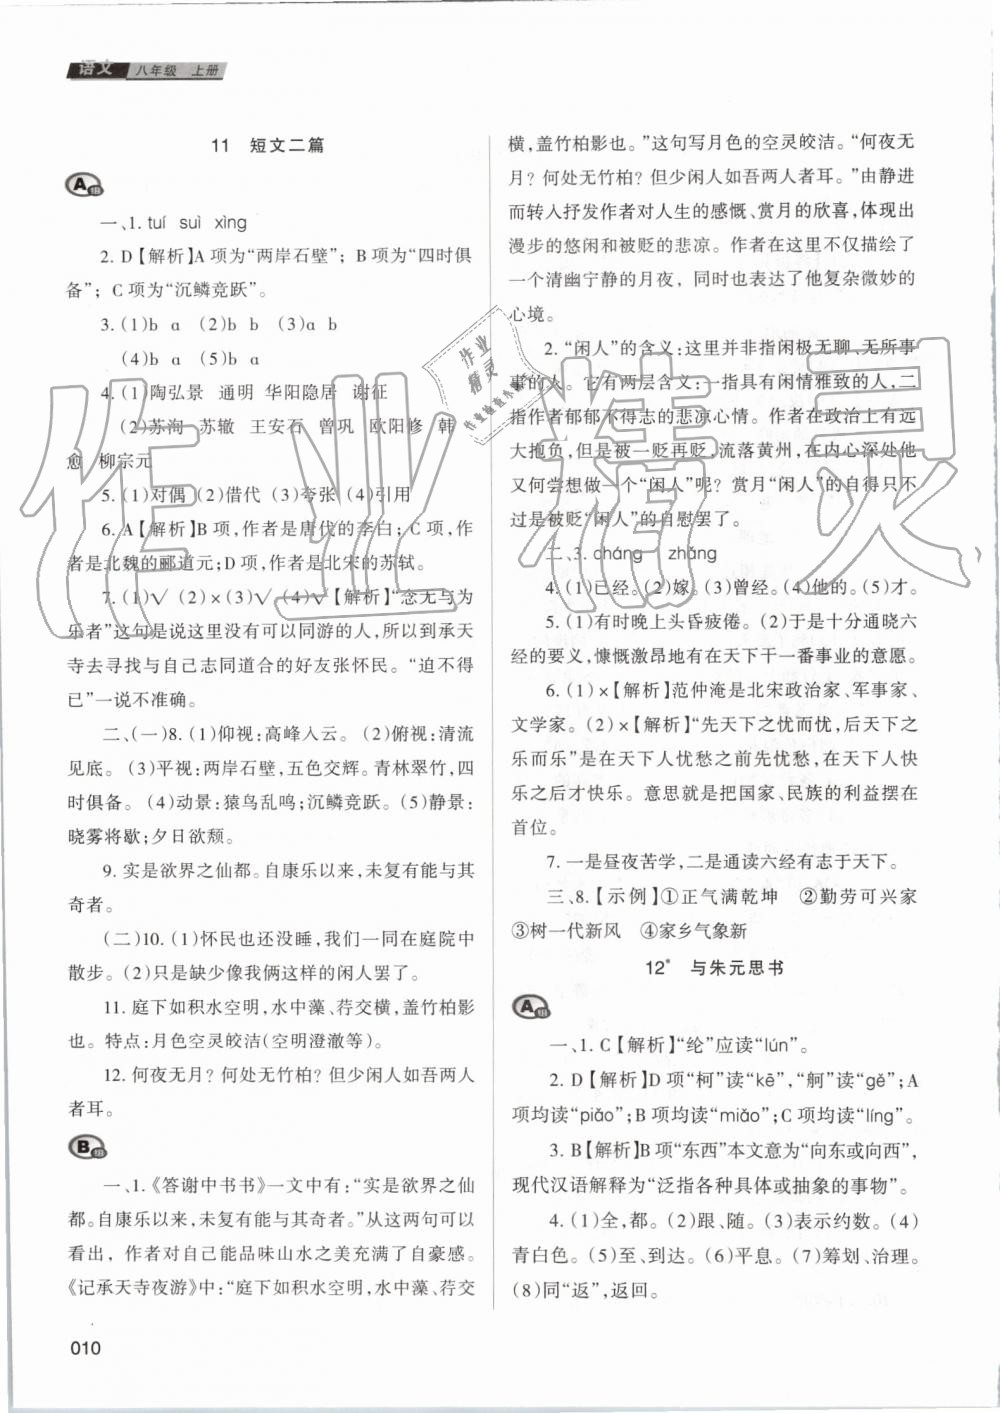 语文 八年级 上册
11 短文二篇
A组
一、1. tuí suì xìng
2. D【解析】A 项为“两岸石壁”；B 项为“四时俱
备”；C 项为“沉鳞竞跃”。
3. (1)b a (2)b b (3)a b
(4)b a (5)b a
4. (1)陶弘景 通明 华阳隐居 谢征
(2)苏洵 苏辙 王安石 曾巩 欧阳修 韩
愈 柳宗元
5. (1)对偶 (2)借代 (3)夸张 (4)引用
6. A【解析】B 项，作者是唐代的李白；C 项，作
者是北魏的郦道元；D 项，作者是北宋的苏轼。
7. (1)√ (2)×(3)√ (4)√【解析】“念无与为
乐者”这句是说这里没有可以同游的人，所以到承天
寺去寻找与自己志同道合的好友张怀民。“迫不得
已”一说不准确。
二、(一)8. (1)仰视：高峰入云。 (2)俯视：清流
见底。 (3)平视：两岸石壁，五色交辉。青林翠竹，四
时俱备。 (4)动景：猿鸟乱鸣；沉鳞竞跃。(5)静景：
晓雾将歇；夕日欲颓。
9. 实是欲界之仙都。自康乐以来，未复有能与其
奇者。
(二)10. (1)怀民也还没睡，我们一起在庭院中
散步。(2)只是缺少像我俩这样的闲人罢了。
11. 庭下如积水空明，水中藻、荇交横，盖竹柏影
也。特点：月色空灵皎洁(空明澄澈等)。
12. 何夜无月？何处无竹柏？但少闲人如吾两人
者耳。
B组
一、1.《答谢中书书》一文中有：“实是欲界之仙
都。自康乐以来，未复有能与其奇者。”从这两句可以
看出，作者对自己能品味山水之美充满了自豪感。
《记承天寺夜游》中：“庭下如积水空明，水中藻、荇交
横，盖竹柏影也。”这句写月色的空灵皎洁。“何夜无
月？何处无竹柏？但少闲人如吾两人者耳。”由静进
而转入抒发作者对人生的感慨、赏月的欣喜，体现出
漫步的悠闲和被贬的悲凉。作者在这里不仅描绘了
一个清幽宁静的月夜，同时也表达了他复杂微妙的
心境。
2. “闲人”的含义：这里并非指闲极无聊、无所事
事的人。它有两层含义：一指具有闲情雅致的人，二
指作者郁郁不得志的悲凉心情。作者在政治上有远
大抱负，但是一贬再贬，流落黄州，在内心深处他
又何尝想做一个“闲人”呢？赏月“闲人”的自得只不
过是被贬“闲人”的自慰罢了。
二、3. cháng zhǎng
4. (1)已经。(2)嫁。(3)曾经。(4)他的。(5)才。
5. (1)有时晚上头昏疲倦。(2)于是十分通晓六
经的要义，慷慨激昂地有在天下干一番事业的意愿。
6. (1)×【解析】范仲淹是北宋政治家、军事家、
文学家。(2)×【解析】“先天下之忧而忧，后天下之
乐而乐”是在天下人忧愁之前先忧愁，在天下人快
乐之后才快乐。意思就是把国家、民族的利益摆在
首位。
7. 一是昼夜苦学，二是通读六经有志于天下。
三、8.【示例】①正气满乾坤 ②勤劳可兴家
③树一代新风 ④家乡气象新
12* 与朱元思书
A组
一、1. C【解析】“纶”应读“lún”。
2. D【解析】D 项“柯”读“kē”，“舸”读“gě”；A
项均读“piǎo”；B 项均读“miǎo”；C 项均读“líng”。
3. B【解析】B 项“东西”本文意为“向东或向西”，
现代汉语解释为“泛指各种具体或抽象的事物”。
4. (1)全，都。(2)跟、随。(3)表示约数。(4)
青白色。(5)至、到达。(6)平息。(7)筹划、治理。
(8)同“返”，返回。
010
作业精灵
作业精灵